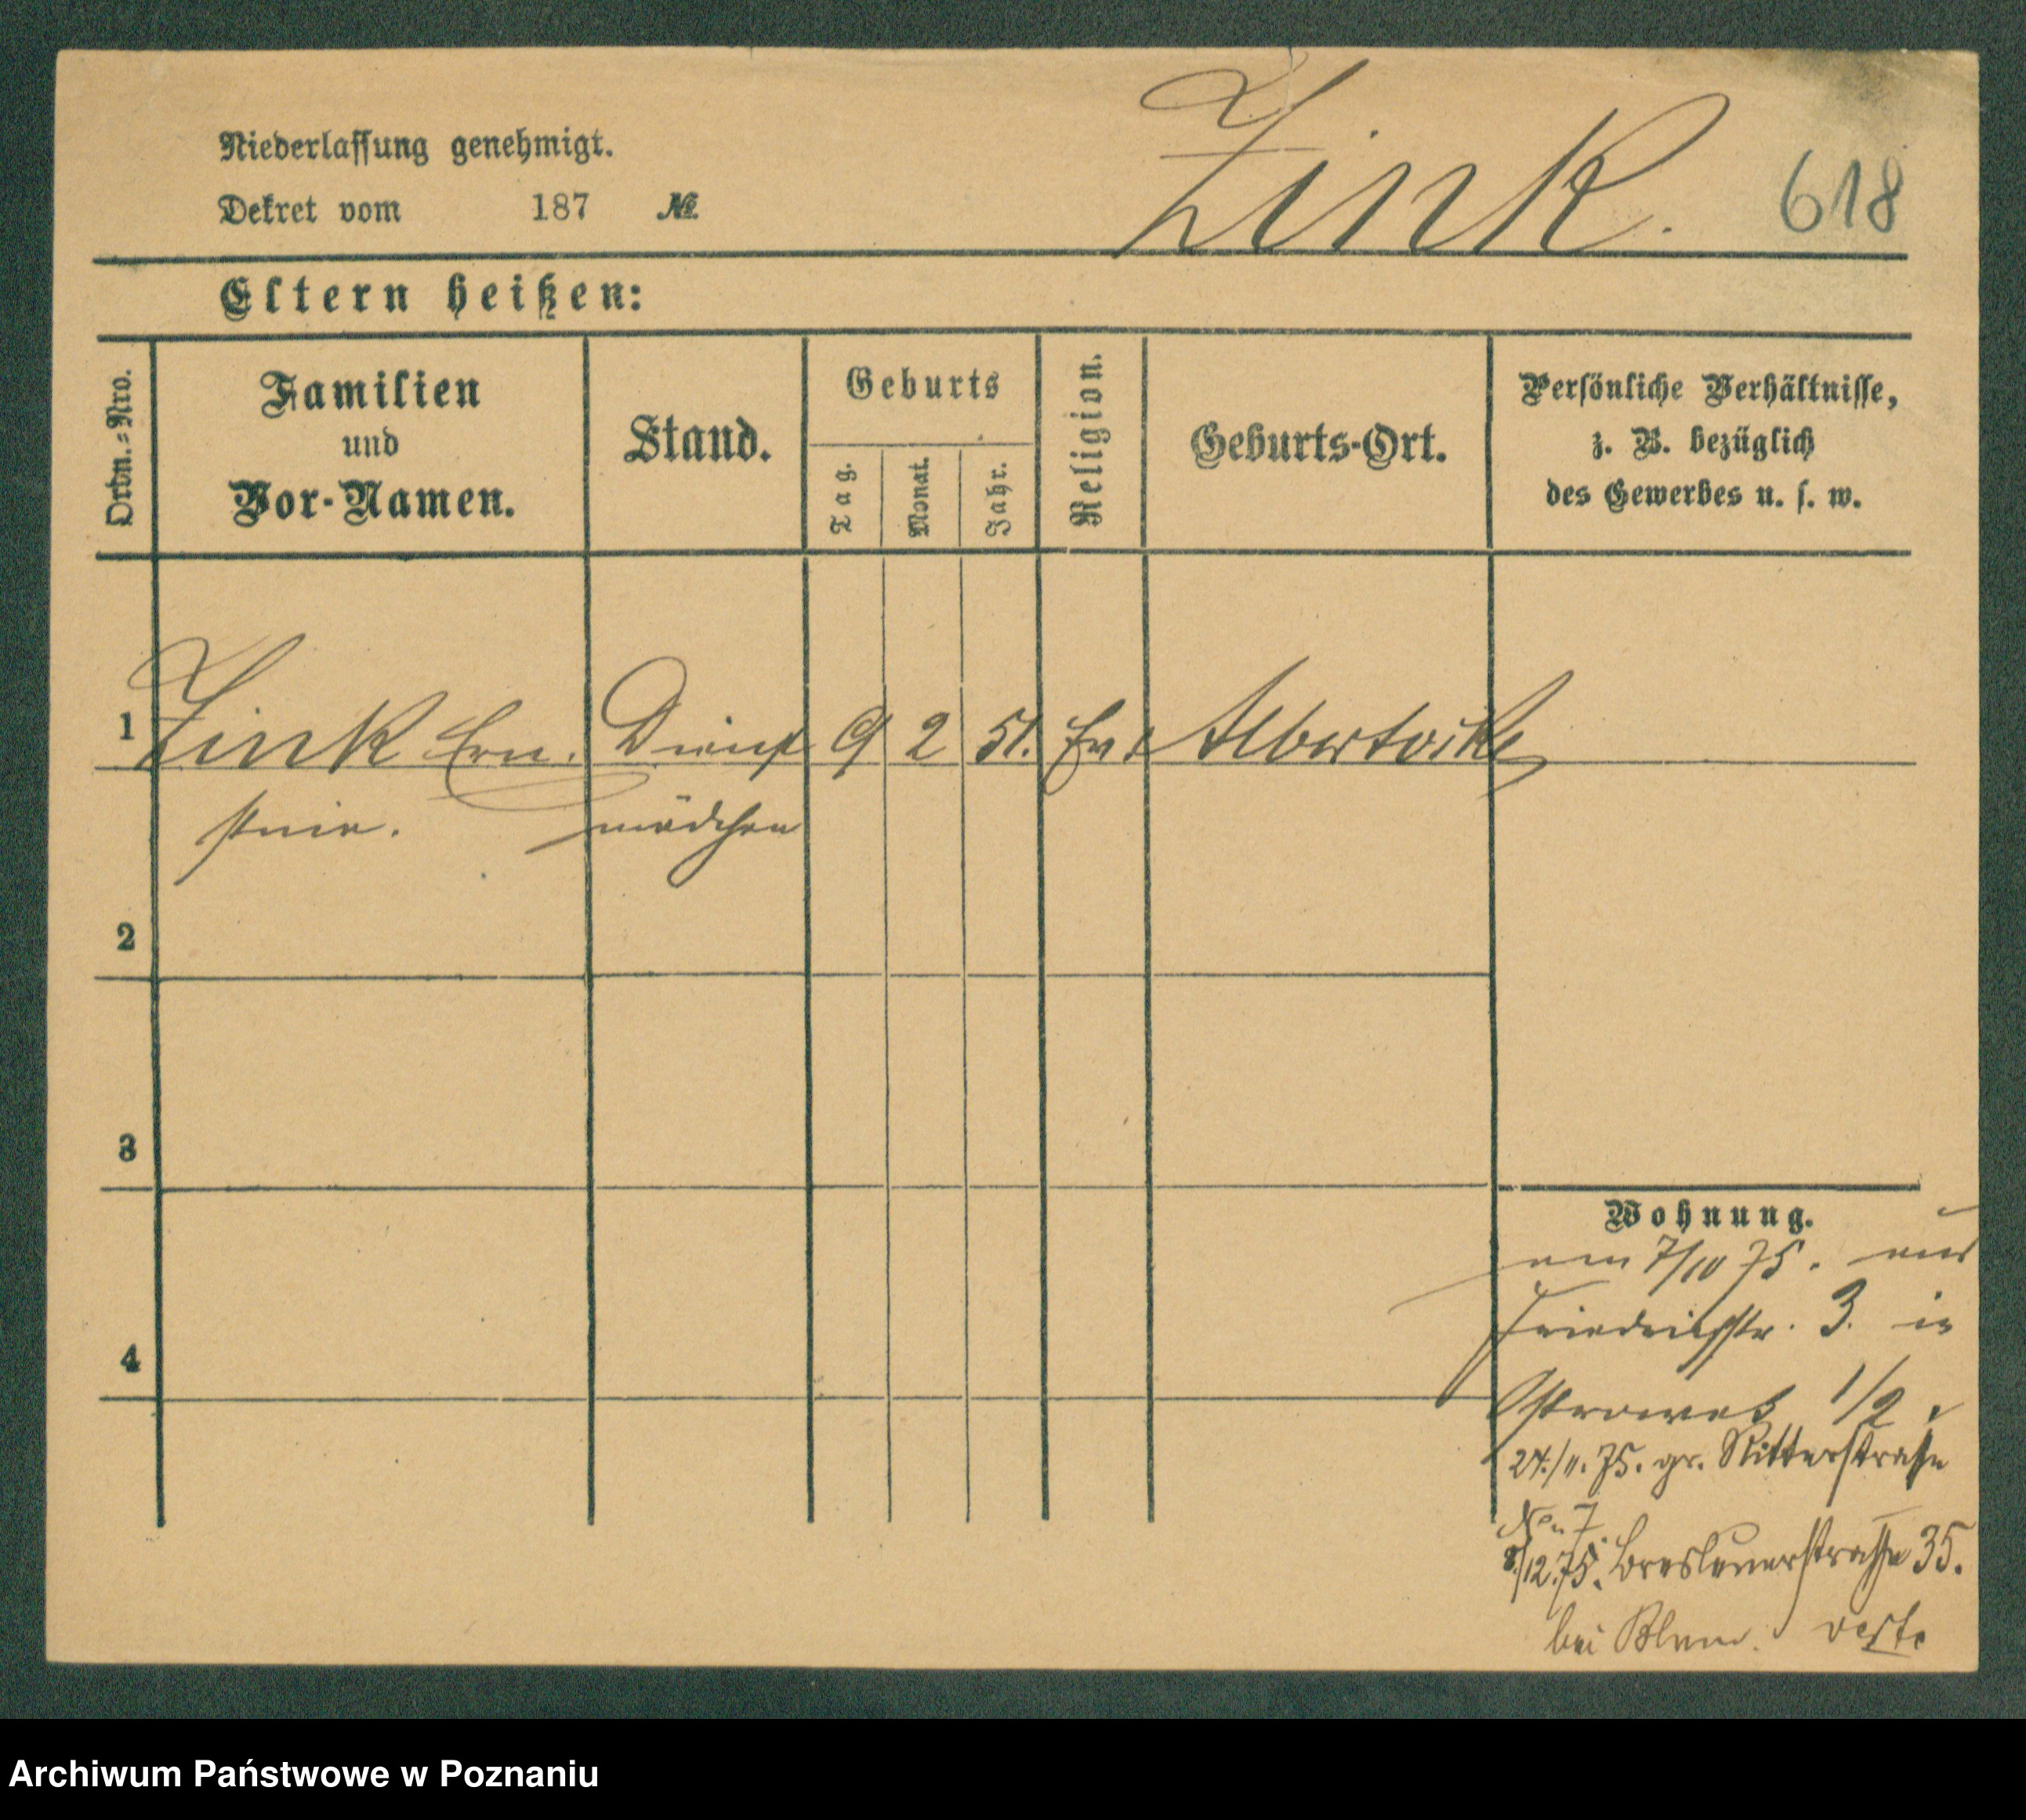 Niederlassung genehmigt.
Dekret vom 187 №
Zink. 618
Eltern heißen:
Ordn.-Nro.
Familien
und
Vor-Namen.
Stand.
Geburts
Tag.
Monat.
Jahr.
Religion.
Geburts-Ort.
Persönliche Verhältnisse,
z. B. bezüglich
des Gewerbes u. s. w.
1 Zink Ern. Dienst 9 2 51. Ev.
stine. mädchen
2
3
4
Wohnung.
am 7/10 75. aus
Friedrichstr. 3. in
Ostrowek 1/2.
24./11. 75. gr. Ritterstraße
No 7.
8/12.75. Breslauerstraße 35.
bei Blum.
Archiwum Państwowe w Poznaniu